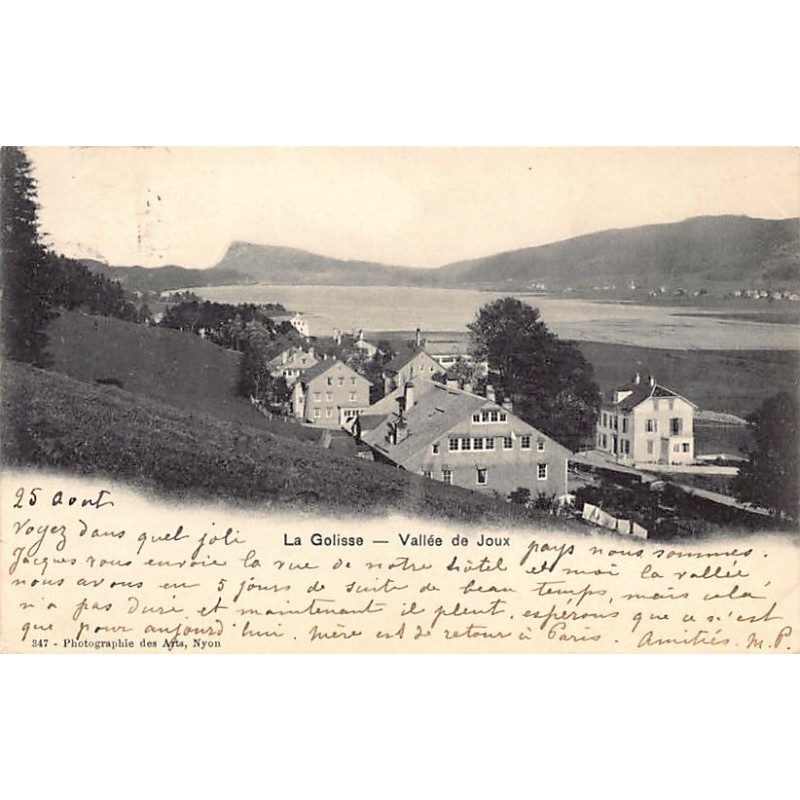 25 Août
Voyez dans quel joli pays nous sommes.
La Golisse — Vallée de Joux
Jacques vous envoie la vue de notre hôtel et moi la vallée,
nous avons eu 5 jours de suite de beau temps, mais cela
n'a pas duré et maintenant il pleut, espérons que ce n'est
que pour aujourd'hui. Mère est de retour à Paris. Amitiés. M.P.
347 - Photographie des Arts, Nyon